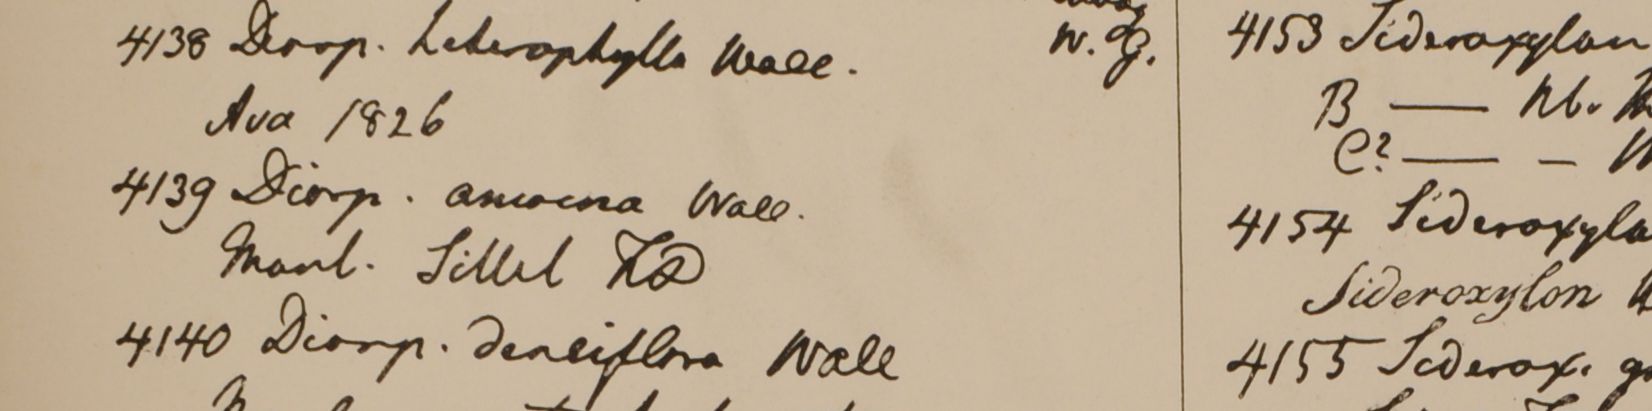 4138 Diosp. heterophylla Wall.
W. G.
Ava 1826
4139 Diosp. amoena Wall.
Mont. Sillet FD
4140 Diosp. densiflora Wall
4153 Sideroxylon
B — hb.
C? — –
4154 Sideroxylo
Sideroxylon
4155 Siderox.